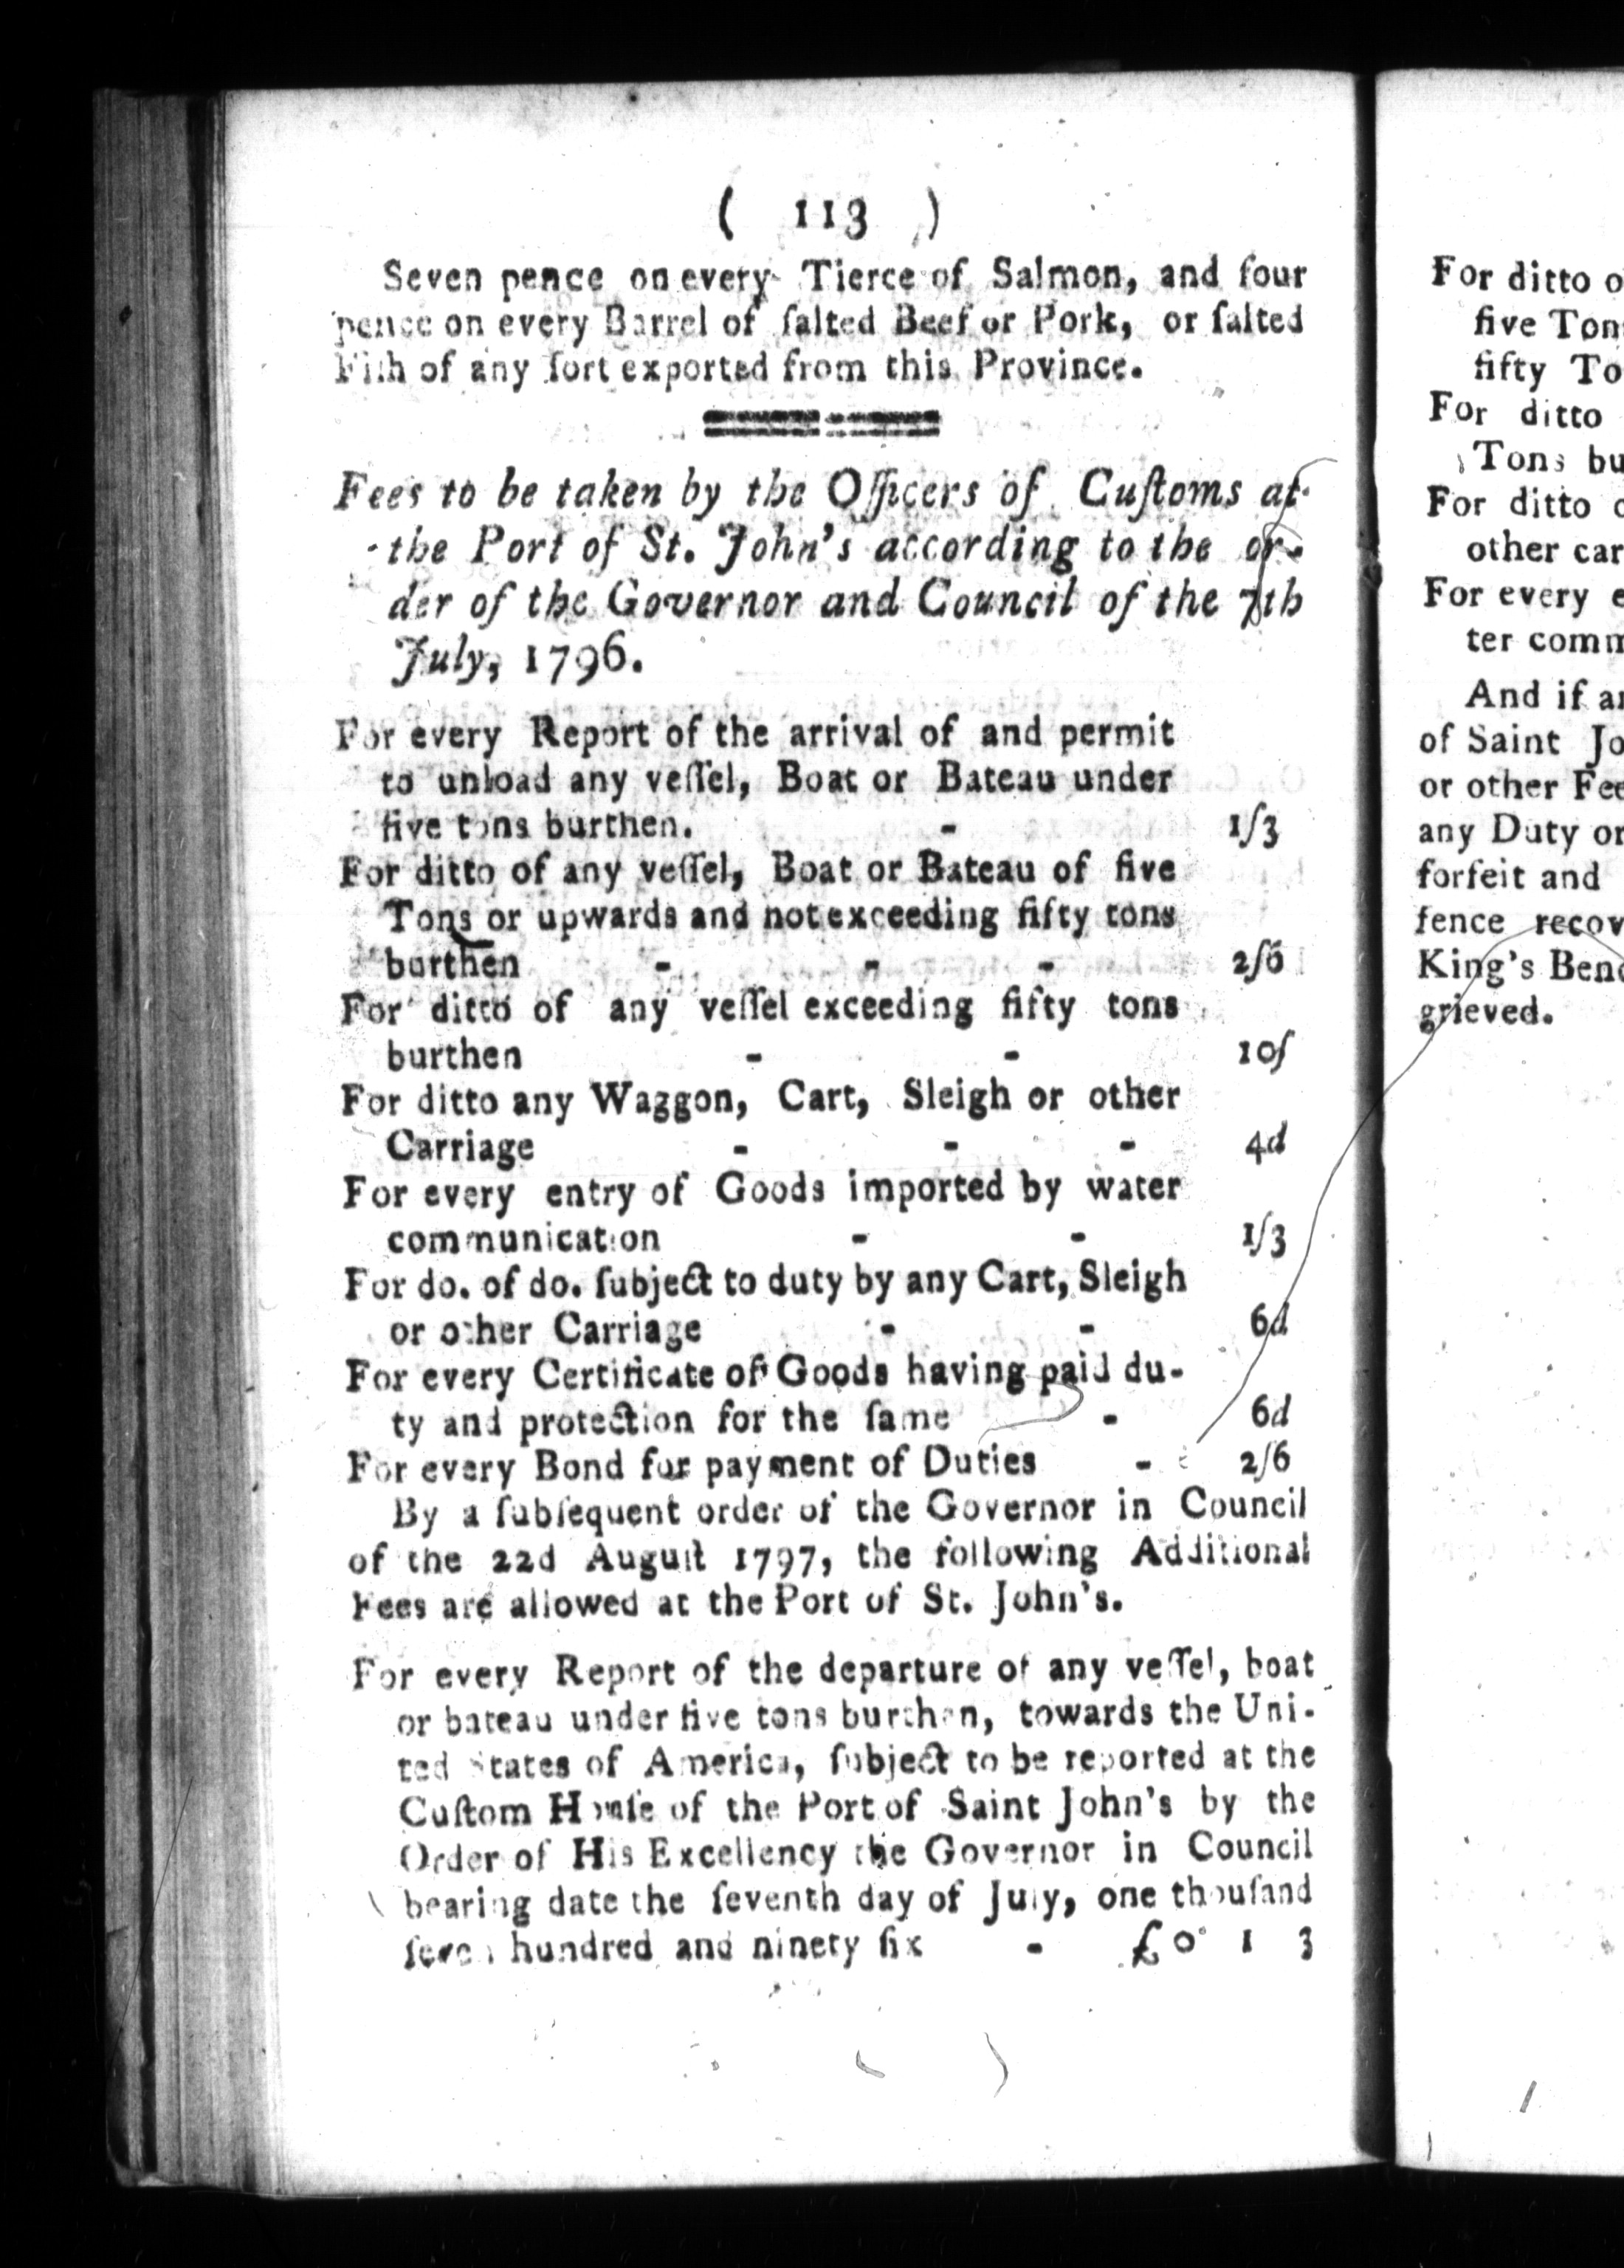 ( 113 )
Seven pence on every Tierce of Salmon, and four
pence on every Barrel of ſalted Beef or Pork, or ſalted
Fiſh of any ſort exported from this Province.
Fees to be taken by the Officers of Cuſtoms at
the Port of St. John's according to the or-
der of the Governor and Council of the 7th
July, 1796.
For every Report of the arrival of and permit
to unload any veſſel, Boat or Bateau under
five tons burthen. - 1ſ3
For ditto of any veſſel, Boat or Bateau of five
Tons or upwards and not exceeding fifty tons
burthen - - - 2ſ6
For ditto of any veſſel exceeding fifty tons
burthen - - 10ſ
For ditto any Waggon, Cart, Sleigh or other
Carriage - - - 4d
For every entry of Goods imported by water
communication - - 1ſ3
For do. of do. ſubject to duty by any Cart, Sleigh
or other Carriage - - 6d
For every Certificate of Goods having paid du-
ty and protection for the ſame - 6d
For every Bond for payment of Duties - 2ſ6
By a ſubſequent order of the Governor in Council
of the 22d Auguſt 1797, the following Additional
Fees are allowed at the Port of St. John's.
For every Report of the departure of any veſſel, boat
or bateau under five tons burthen, towards the Uni-
ted States of America, ſubject to be reported at the
Cuſtom Houſe of the Port of Saint John's by the
Order of His Excellency the Governor in Council
bearing date the ſeventh day of July, one thouſand
ſeven hundred and ninety ſix - £ 0 1 3
For ditto o
five Ton
fifty To
For ditto
Tons bu
For ditto o
other car
For every e
ter comm
And if a
of Saint Jo
or other Fee
any Duty or
forfeit and
fence recov
King's Benc
grieved.